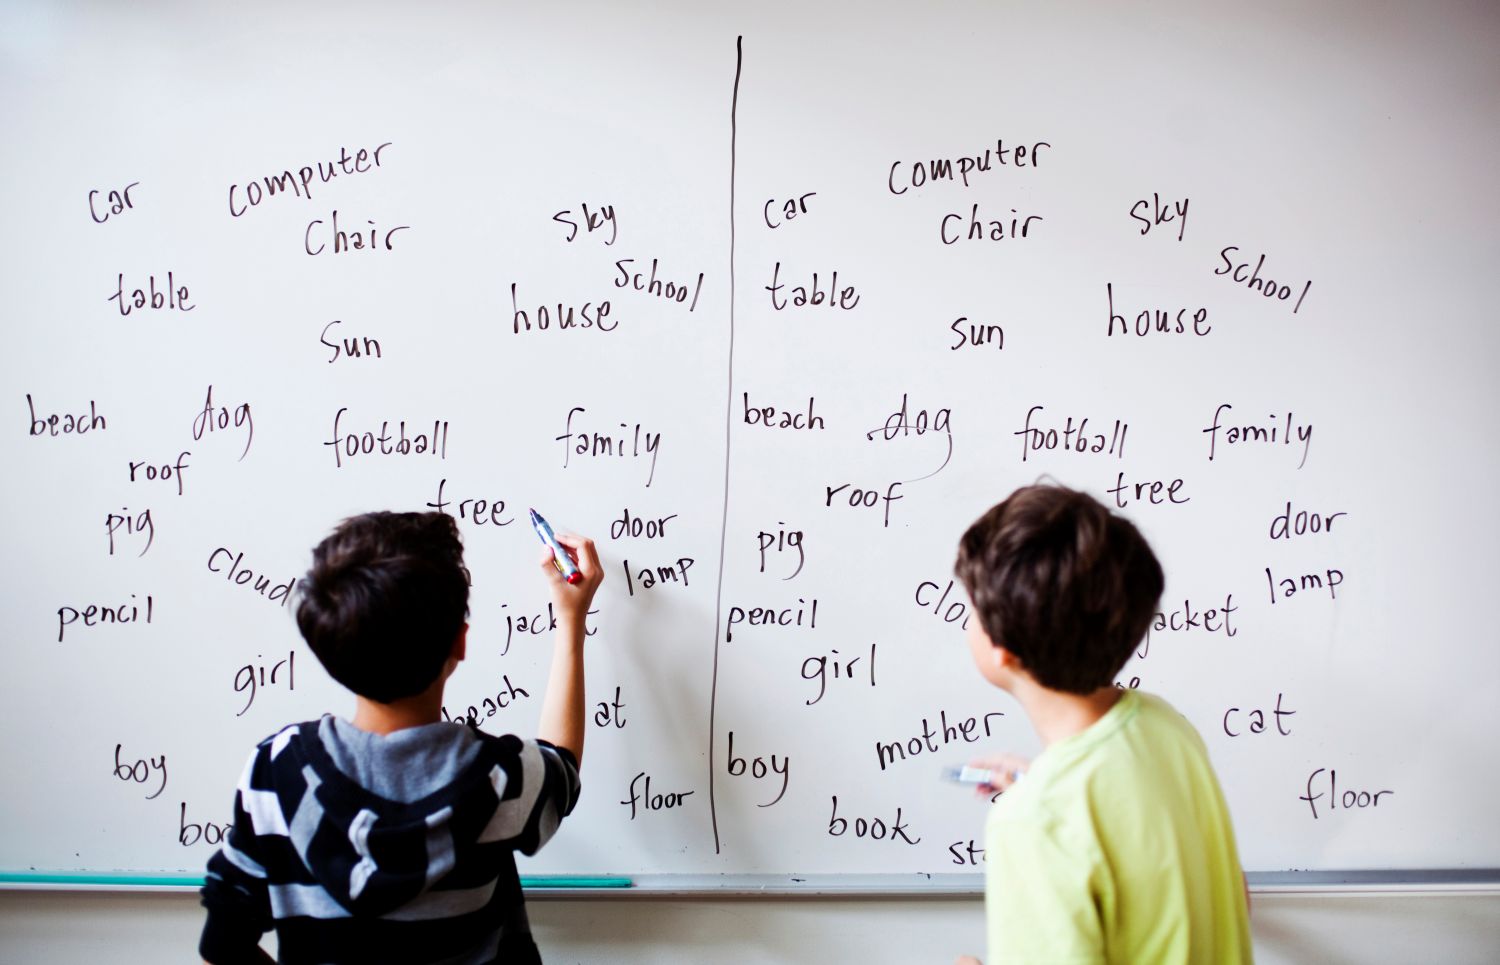 car
computer
Chair
sky
school
table
house
Sun
beach
dog
football
family
roof
tree
pig
door
Cloud
lamp
pencil
jack t
girl
beach
at
boy
floor
boo
car
computer
Chair
sky
school
table
house
sun
beach
dog
football
family
roof
tree
door
pig
lamp
clo
pencil
acket
girl
cat
mother
boy
floor
book
st